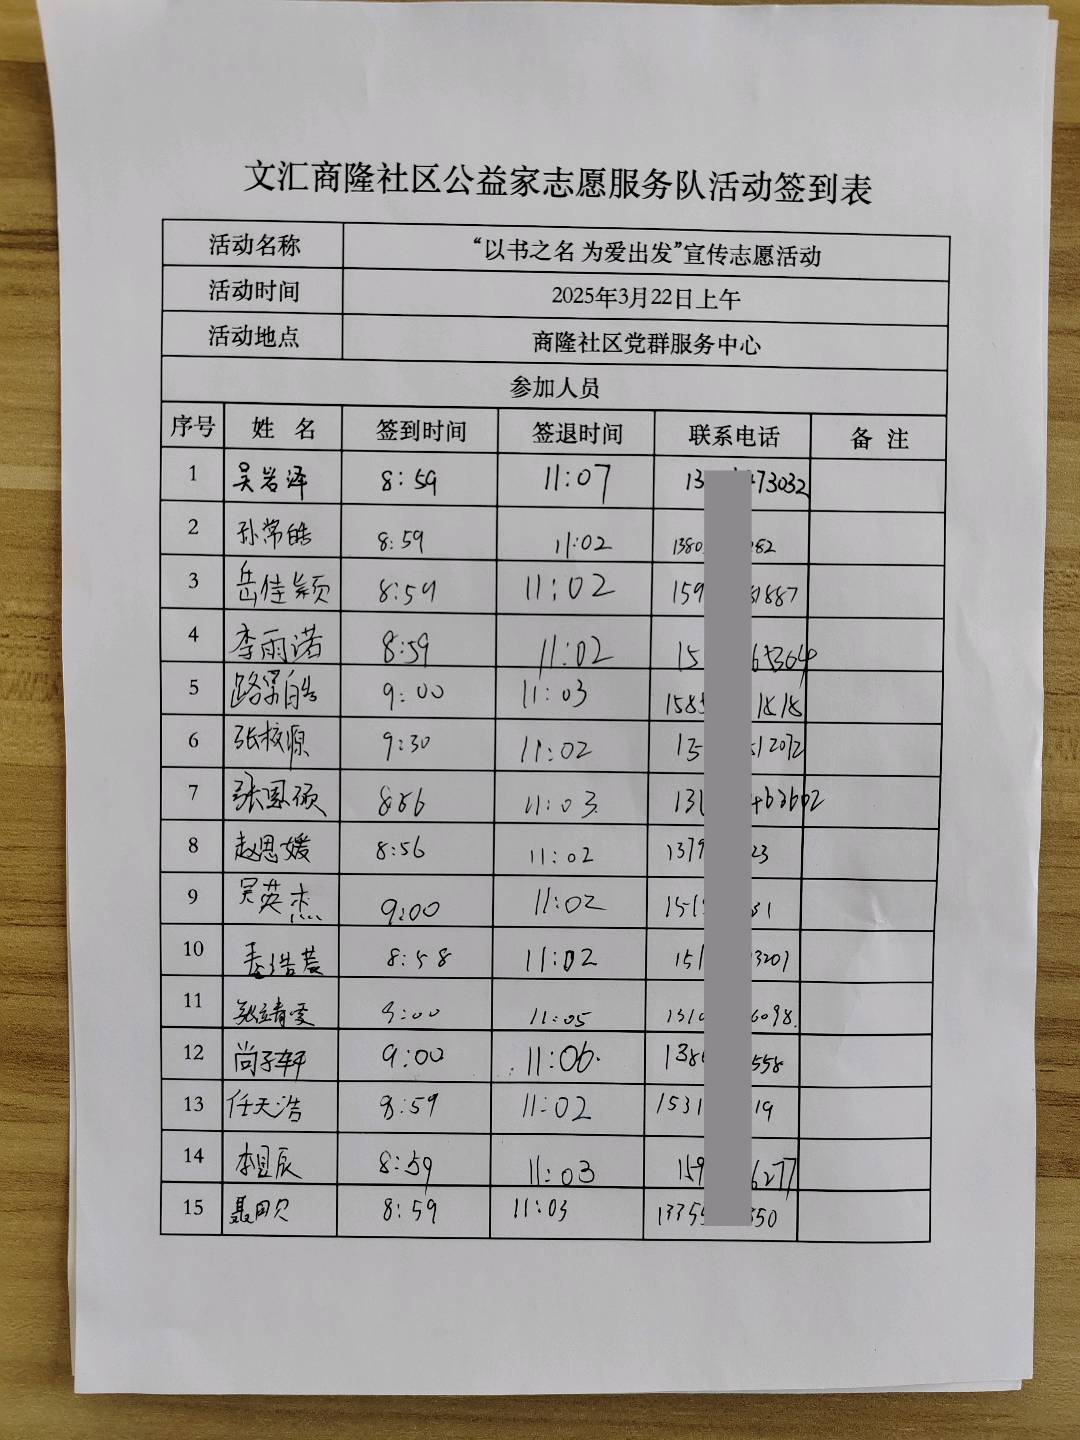 文汇商隆社区公益家志愿服务队活动签到表
活动名称 “以书之名 为爱出发”宣传志愿活动
活动时间 2025年3月22日上午
活动地点 商隆社区党群服务中心
参加人员
序号 姓 名 签到时间 签退时间 联系电话 备 注
1 吴岩泽 8:59 11:07 13 73032
2 孙常皓 8:59 11:02 1380 82
3 岳佳颖 8:59 11:02 159 1887
4 李雨诺 8:59 11:02 15 65364
5 路梁皓 9:00 11:03 158 1818
6 张校源 9:30 11:02 13 12072
7 8:56 11:03 13 462602
8 赵思媛 8:56 11:02 1379 23
9 吴英杰 9:00 11:02 151 31
10 8:58 11:02 151 3201
11 张靖雯 9:00 11:05 1310 6098.
12 尚子轩 9:00 11:06. 138 558
13 任天浩 8:59 11:02 1531 19
14 李昱辰 8:59 11:03 159 6277
15 8:59 11:03 13355 350